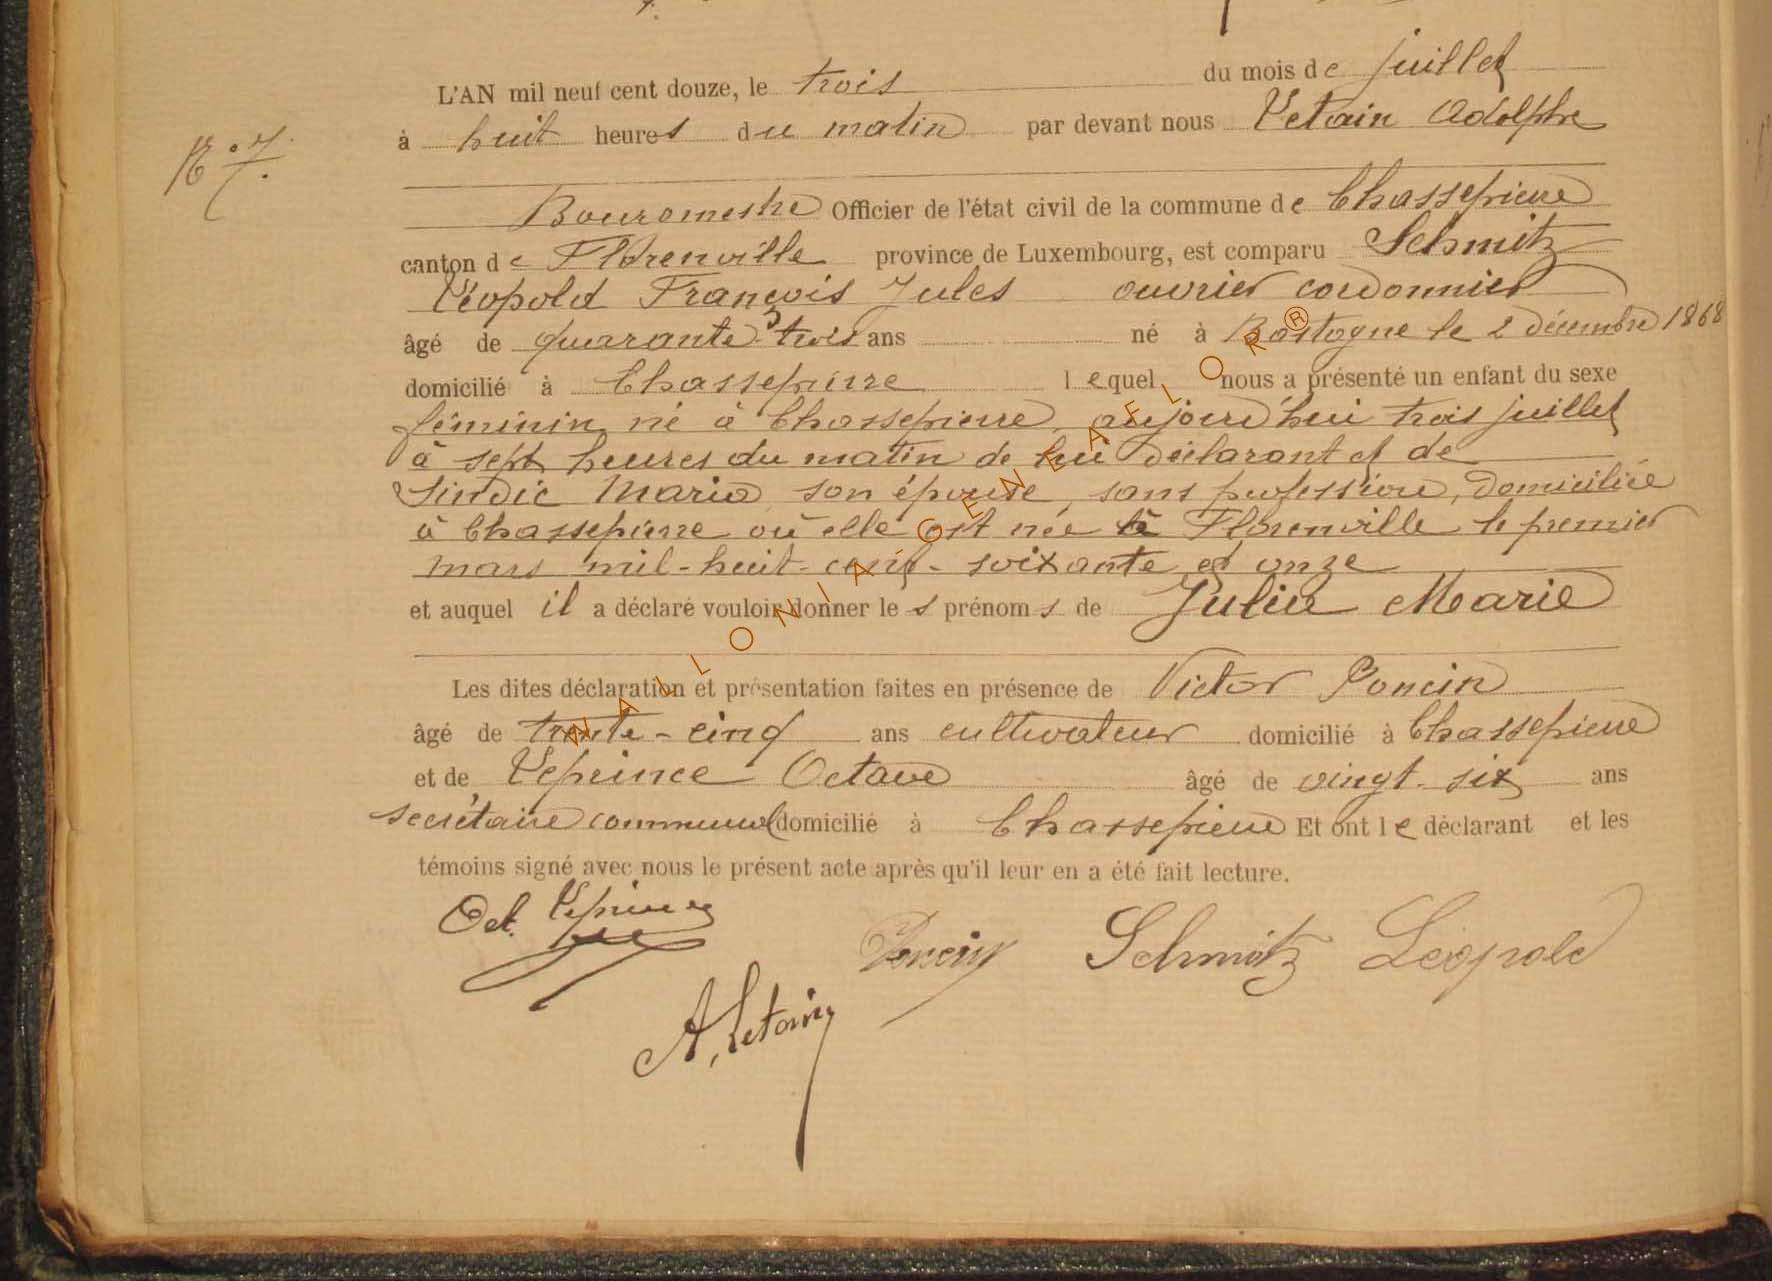 L'AN mil neuf cent douze, le trois du mois de juillet
N° 7.
à huit heures du matin par devant nous Letain Adolphe
Bourgmestre Officier de l'état civil de la commune de Chassepierre
canton de Florenville province de Luxembourg, est comparu Schmitz
Léopold François Jules ouvrier cordonnier
âgé de quarante trois ans né à Bastogne le 2 décembre 1868
domicilié à Chassepierre lequel nous a présenté un enfant du sexe
féminin né à Chassepierre, aujourd'hui trois juillet
à sept heures du matin de lui déclarant et de
Sindic Maria, son épouse, sans profession, domiciliée
à Chassepierre où elle est née à Florenville le premier
mars mil-huit-cent-soixante et onze
et auquel il a déclaré vouloir donner les prénoms de Julia Marie
Les dites déclaration et présentation faites en présence de Victor Poncin
âgé de trente-cinq ans cultivateur domicilié à Chassepierre
et de Leprince Octave âgé de vingt-six ans
secrétaire communal domicilié à Chassepierre Et ont le déclarant et les
témoins signé avec nous le présent acte après qu'il leur en a été fait lecture.
Oct. Leprince
Poncin Schmitz Léopold
A. Letain
WALLONIA GENEAFLOR ®